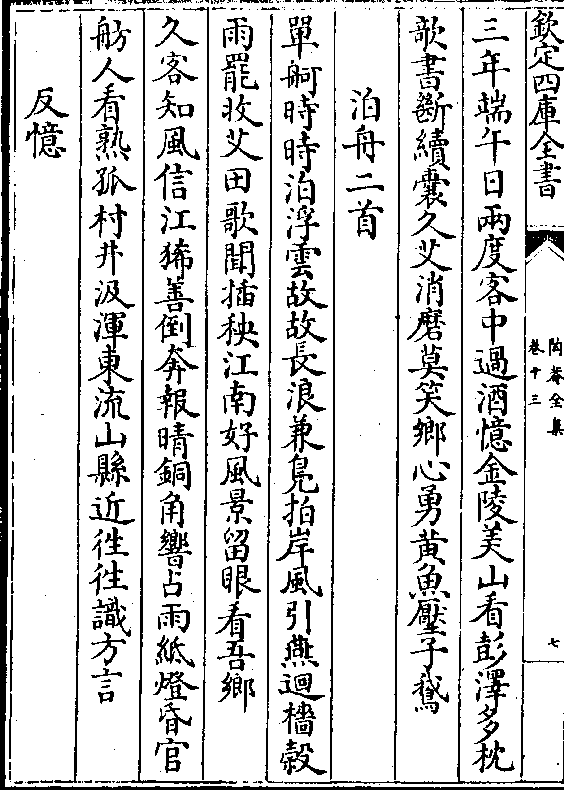 欽定四庫全書
陶菴全集
卷十三
七
三年端午日兩度客中過酒憶金陵美山看彭澤多枕
歌書斷續囊久艾消磨莫笑鄉心勇黃魚壓子鵞
泊舟二首
單舸時時泊浮雲故故長浪兼鳧拍岸風引燕迴檣穀
雨罷收艾田歌聞插秧江南好風景留眼看吾鄉
久客知風信江豨善倒奔報晴銅角響占雨紙燈昏官
舫人看熟孤村井汲渾東流山縣近徃徃識方言
反憶